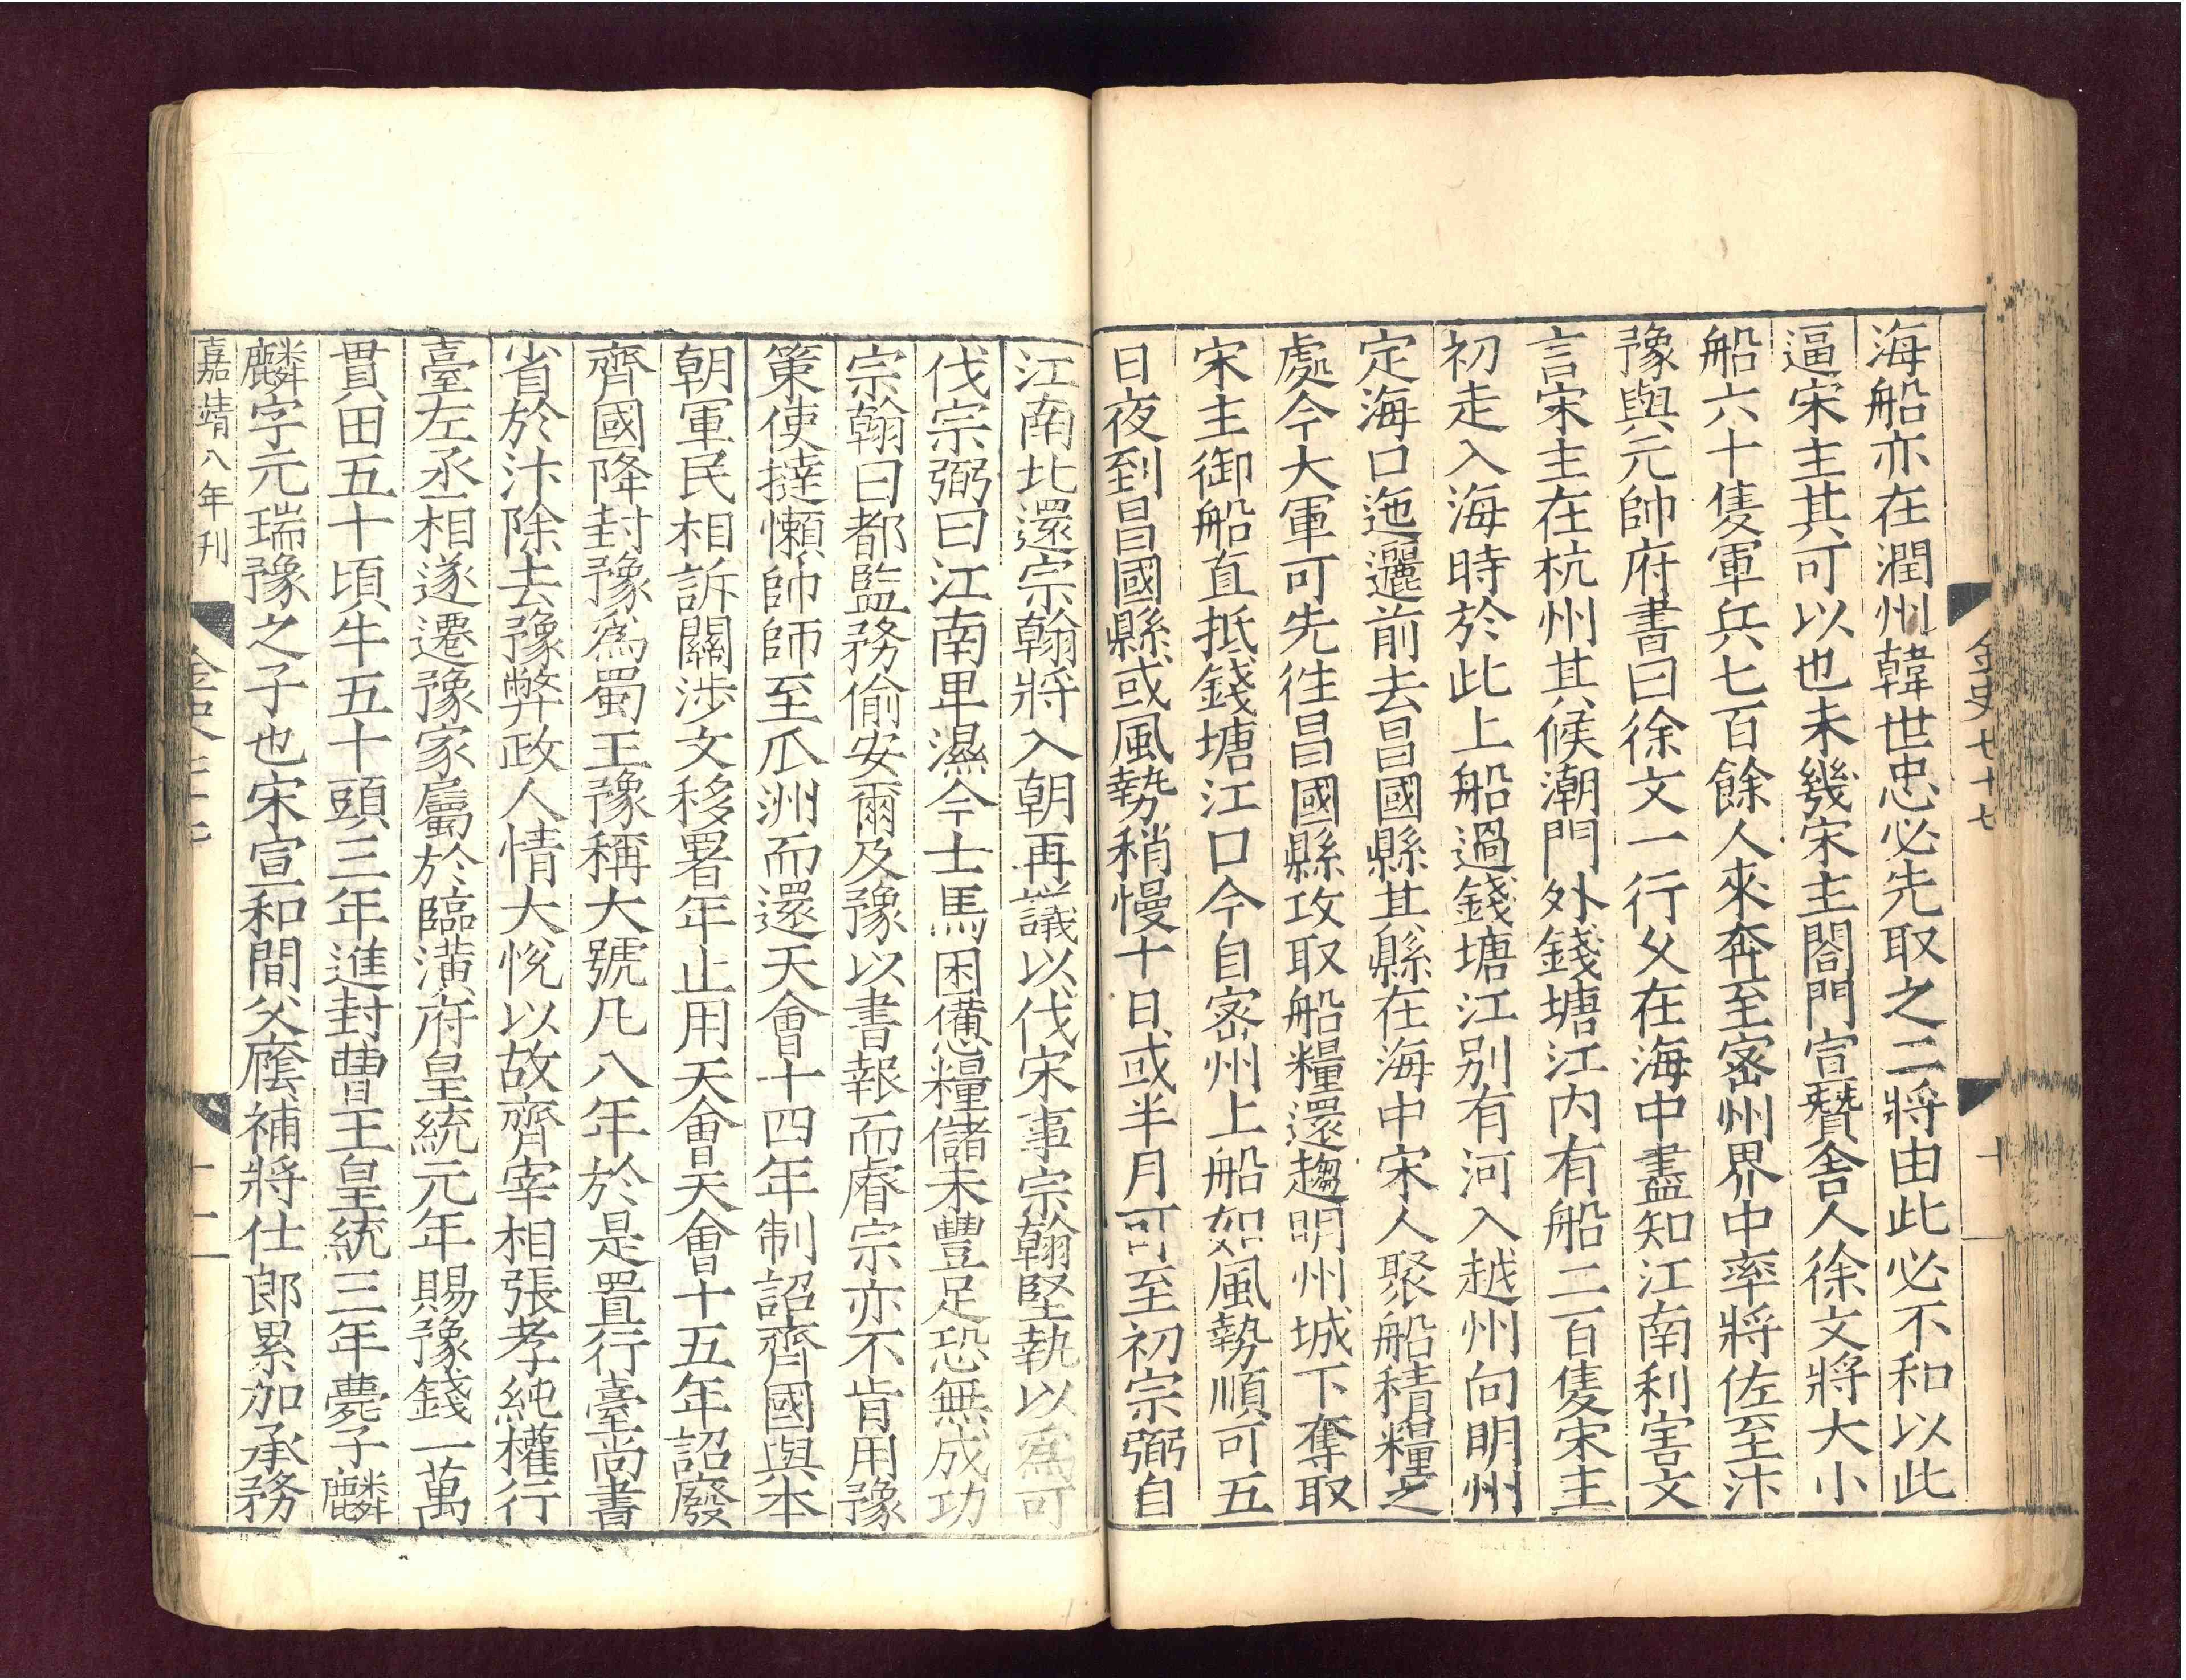 金史七十七
十
海船亦在潤州韓世忠必先取之二將由此必不和以此
逼宋主其可以也未幾宋主閤門宣賛舍人徐文將大小
船六十隻軍兵七百餘人來奔至密州界中率將佐至汴
豫與元帥府書曰徐文一行乆在海中盡知江南利害文
言宋主在杭州其候潮門外錢塘江内有船二百隻宋主
初走入海時於此上船過錢塘江别有河入越州向明州
定海口迤邐前去昌國縣其縣在海中宋人聚船積糧之
處今大軍可先徃昌國縣攻取船糧還趨明州城下奪取
宋主御船直抵錢塘江口今自密州上船如風勢順可五
日夜到昌國縣或風勢稍慢十日或半月可至初宗弼自
江南北還宗翰將入朝再議以伐宋事宗翰堅執以爲可
伐宗弼曰江南卑濕今士馬困憊糧儲未豐足恐無成功
宗翰曰都監務偷安爾及豫以書報而睿宗亦不肯用豫
策使撻懶帥師至瓜洲而還天會十四年制詔齊國與本
朝軍民相訴關涉文移署年止用天會天會十五年詔廢
齊國降封豫爲蜀王豫稱大號凡八年於是置行臺尚書
省於汴除去豫弊政人情大恱以故齊宰相張孝純權行
臺左丞相遂遷豫家屬於臨潢府皇統元年賜豫錢一萬
貫田五十頃牛五十頭二年進封曹王皇統三年薨子麟
麟字元瑞豫之子也宋宣和間父廕補將仕郎累加承務
嘉靖八年刊
金史七十七
十一